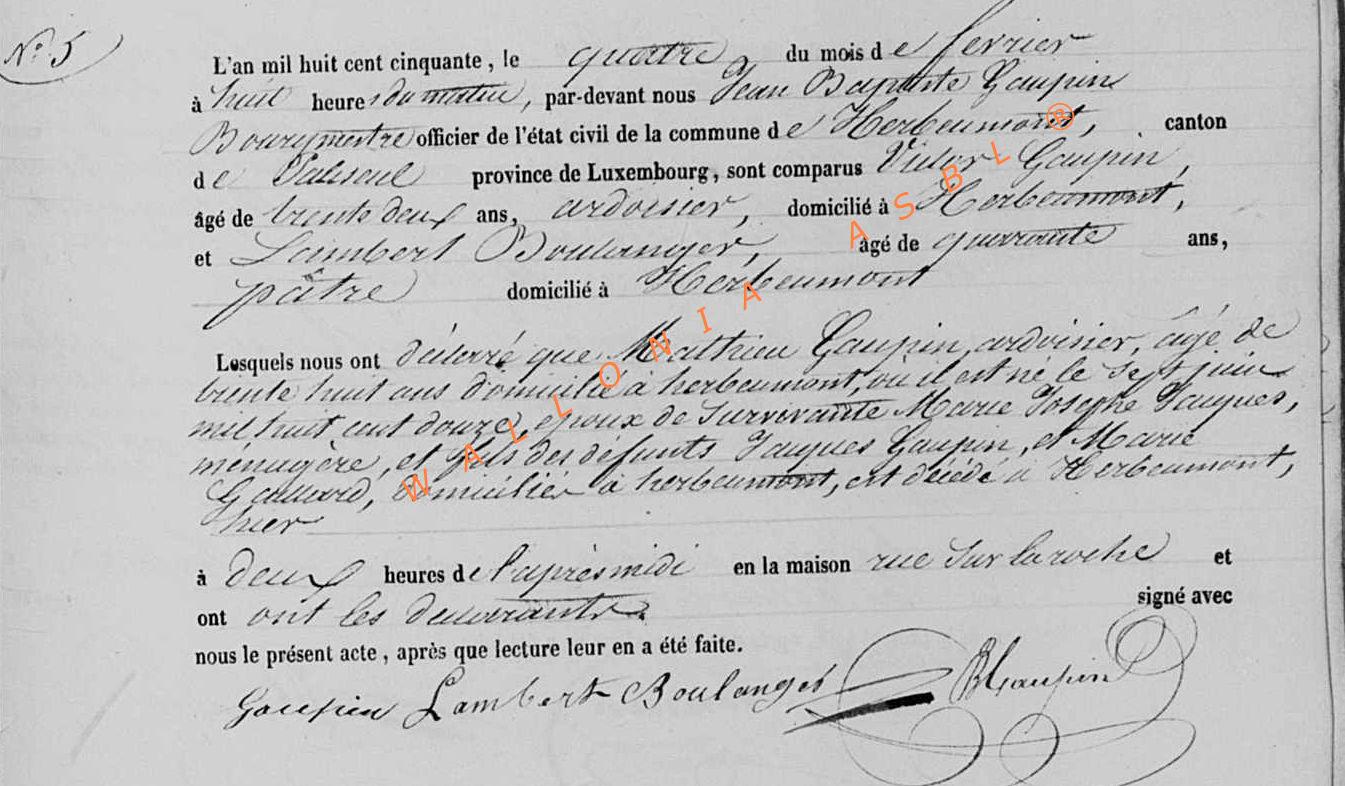 N° 5
L'an mil huit cent cinquante, le quatre du mois de fevrier
à huit heures du matin, par-devant nous Jean Baptiste Gaupin
Bourgmestre officier de l'état civil de la commune de Herbeumont, canton
de Paliseul province de Luxembourg, sont comparus Victor Gaupin,
âgé de trente deux ans, ardoisier, domicilié à Herbeumont,
et Lambert Boulanger, âgé de quarante ans,
pâtre domicilié à Herbeumont
Lesquels nous ont déclaré que Mathieu Gaupin, ardoisier, âgé de
trente huit ans domicilié à herbeumont, ou il est né le sept juin
mil huit cent douze, époux de survivante Marie Josephe Jacques,
ménagère, et fils des défunts Jacques Gaupin, et Marie
domiciliés à herbeumont, est décédé à Herbeumont,
hier
à deux heures de l'après midi en la maison rue sur la roche et
ont ont les déclarants signé avec
nous le présent acte, après que lecture leur en a été faite.
Gaupin Lambert Boulanger JBGaupin
WALLONIA ASBL ®